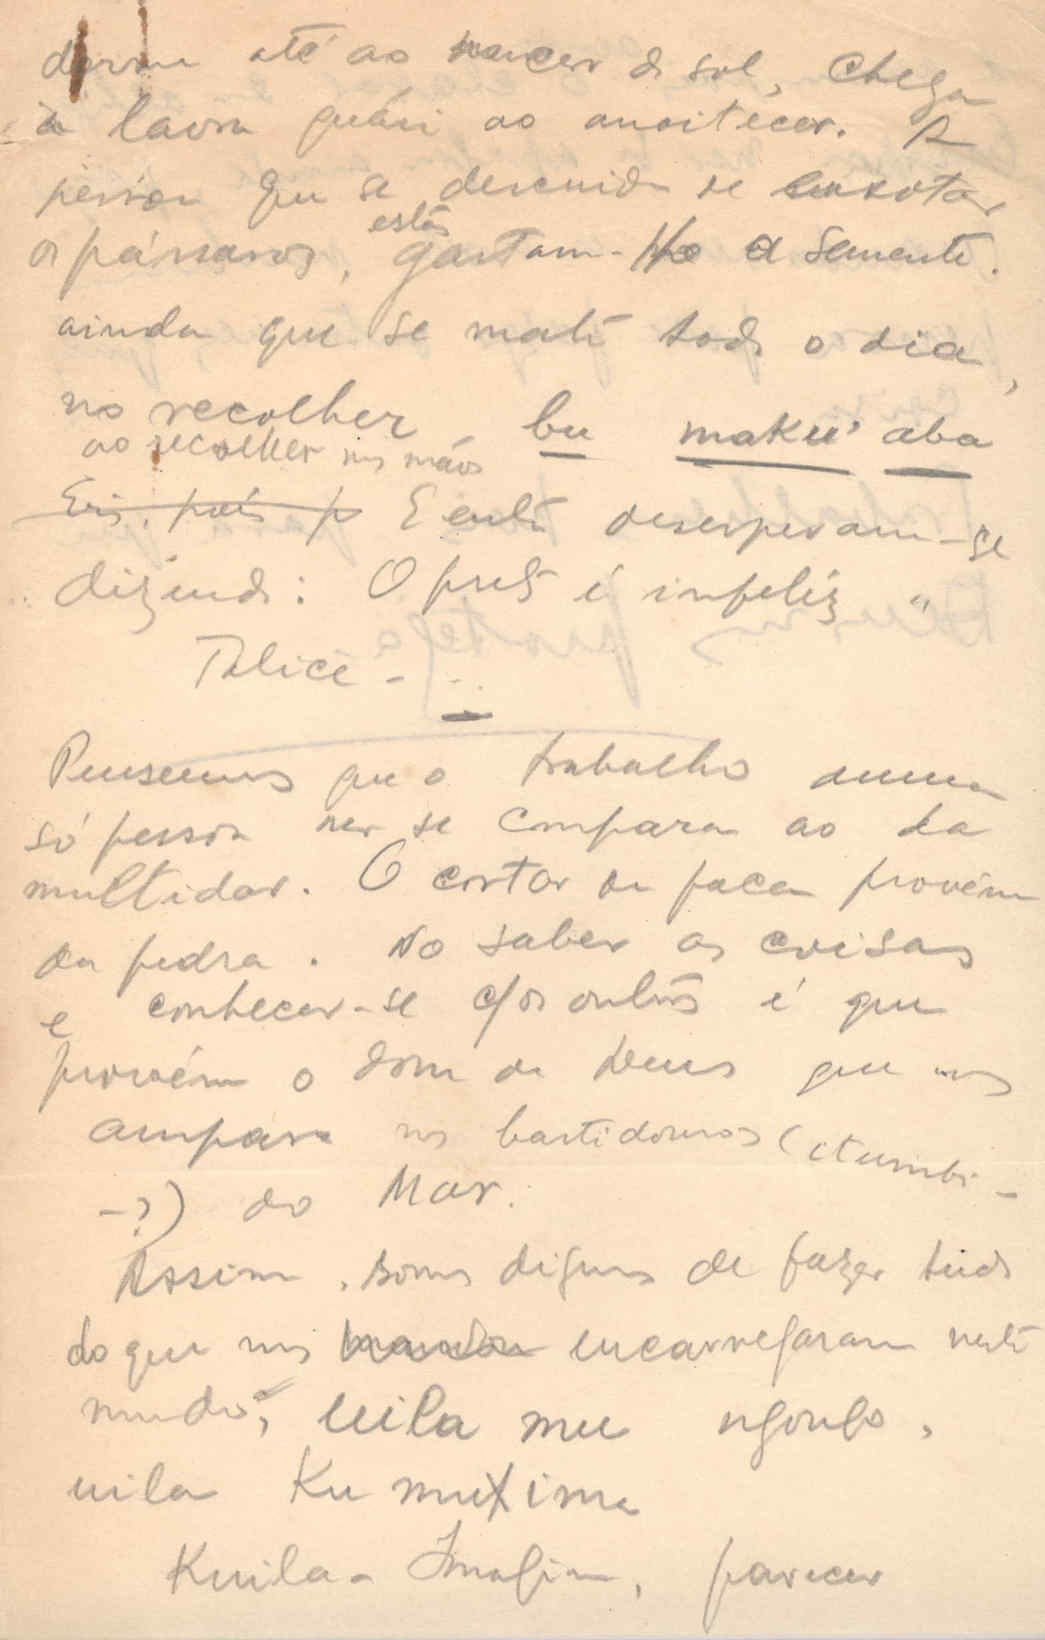 dorme até ao nascer do sol, chega
à lavra quási ao anoitecer. A
pessoa que se descuida de enxotar
os pássaros, estes gastam-lhe a semente.
ainda que se mate todo o dia,
no recolher bu maku' aba
ao recolher nas mãos
Eis, pois p E então desesperam-se
dizendo: O preto é infeliz "
Talice -
Pensemos que o trabalho duma
só pessoa não se compara ao da
multidão. O cortar da faca provém
da pedra. No saber as coisas
e conhecer-se c/os outros é que
provém o dom de Deus que nos
ampara nos bastidores (itumbi-
-?) do Mar.
Assim, somos dignos de fazer tudo
do que nos mandou encarregaram neste
mundo, uila mu ngongo,
uila Ku muxima
Kuila - Imagin, parecer